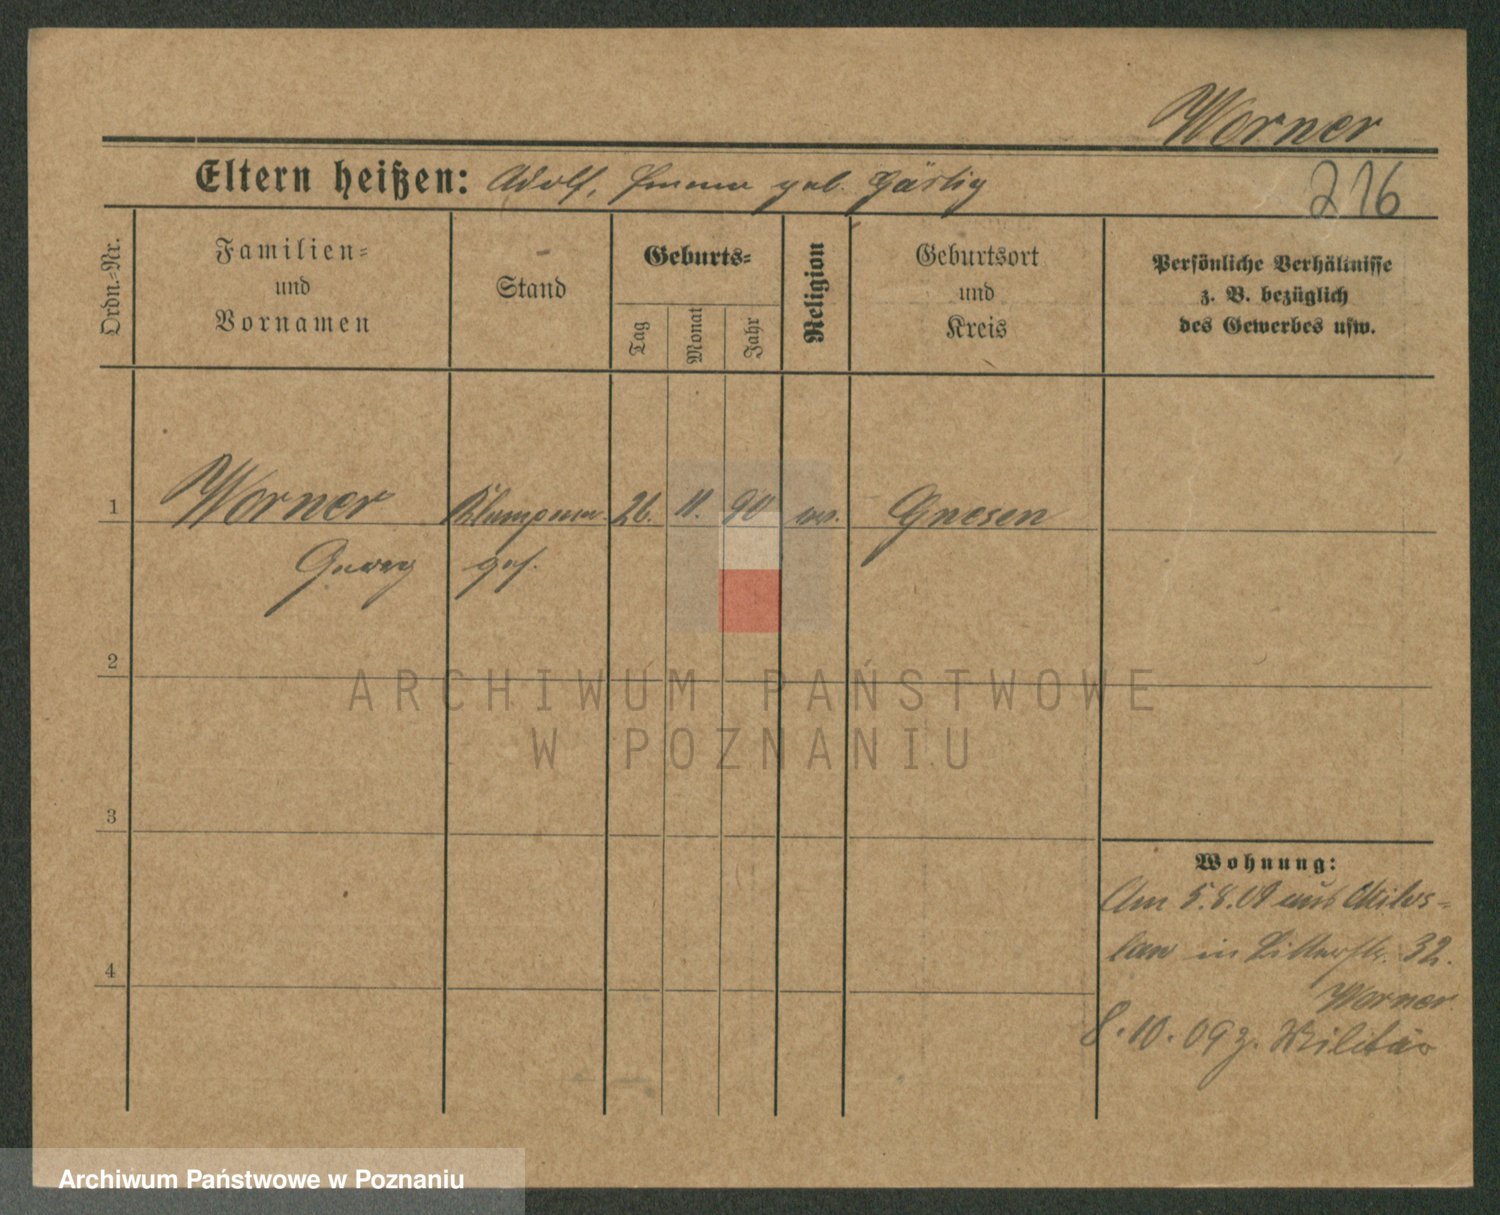 Worner
Eltern heißen: Adolf, Emma geb. Gärtig
216
Ordn.-Nr.
Familien-
und
Vornamen
Stand
Geburts-
Tag
Monat
Jahr
Religion
Geburtsort
und
Kreis
Persönliche Verhältnisse
z. B. bezüglich
des Gewerbes usw.
1 Worner Klempner 26. 11. 90 ev. Gnesen
Georg ges.
2
ARCHIWUM PAŃSTWOWE
W POZNANIU
3
Wohnung:
Am 5.8.09 aus Milos-
law in 32.
4
Worner
8.10.09 z. Militär
Archiwum Państwowe w Poznaniu